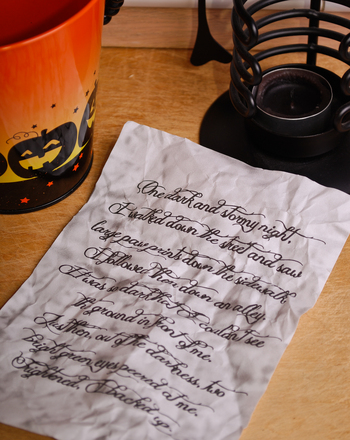 One dark and stormy night,
I walked down the street and saw
large paw prints down the sidewalk.
I followed them down an alley.
It was so dark that I couldn't see
the ground in front of me.
Just then, out of the darkness, two
bright green eyes peered at me.
Frightened, I backed up